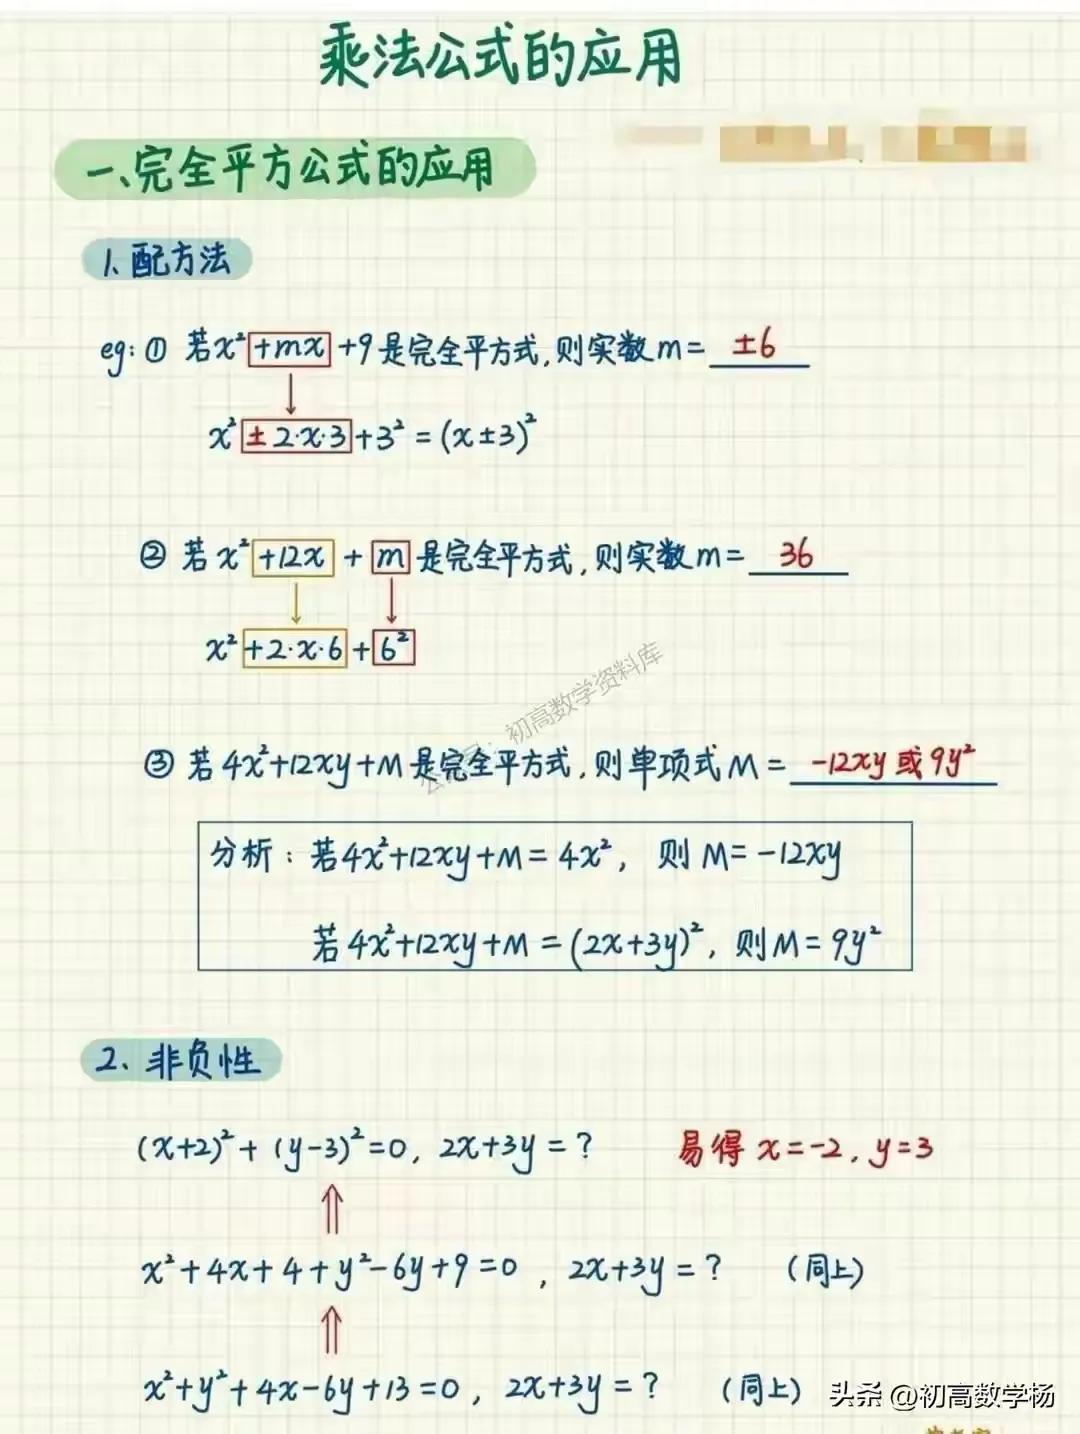 乘法公式的应用
一、完全平方公式的应用
1. 配方法
eg: ① 若x²+mx+9是完全平方式,则实数m= ±6
x²±2·x·3+3²=(x±3)²
② 若x²+12x+m是完全平方式,则实数m= 36
x²+2·x·6+6²
公众号:初高数学资料库
③ 若4x²+12xy+M是完全平方式,则单项式M= -12xy或9y²
分析:若4x²+12xy+M=4x², 则M=-12xy
若4x²+12xy+M=(2x+3y)², 则M=9y²
2. 非负性
(x+2)²+(y-3)²=0, 2x+3y=? 易得x=-2, y=3
x²+4x+4+y²-6y+9=0, 2x+3y=? (同上)
x²+y²+4x-6y+13=0, 2x+3y=? (同上)
头条 @初高数学杨